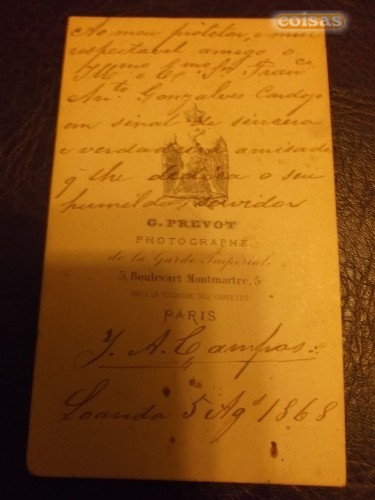 coisas
Ao meu protetor, e mui
respeitavel amigo o
Illmo e Exmo Sr. Franco
Anto Gonzalves Cardozo
em signal de sincera
e verdadeira amisade
q lhe dedica o seu
humilde servidor
G. PREVOT
PHOTOGRAPHE
de la Garde Impériale
5, Boulevart Montmartre, 5
PARIS
J. A. Campos
Loanda 5 Ago 1868